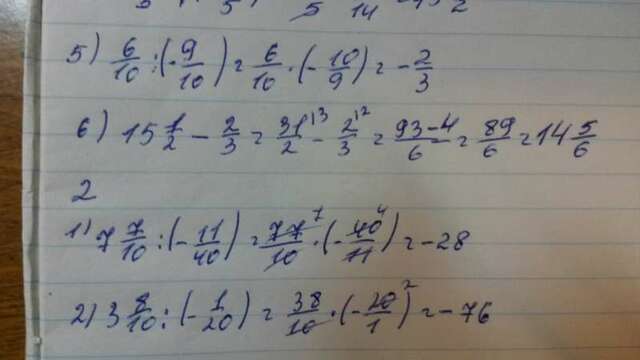 5 14
5) 6/10 : (-9/10) = 6/10 · (-10/9) = -2/3
6) 15 1/2 - 2/3 = 31/2 ¹³ - 2/3 ¹² = 93-4/6 = 89/6 = 14 5/6
2
1) 7 7/10 : (-11/40) = 77/10 ⁷ · (-40/11 ⁴) = -28
2) 3 8/10 : (-1/20) = 38/10 · (-20/1)² = -76